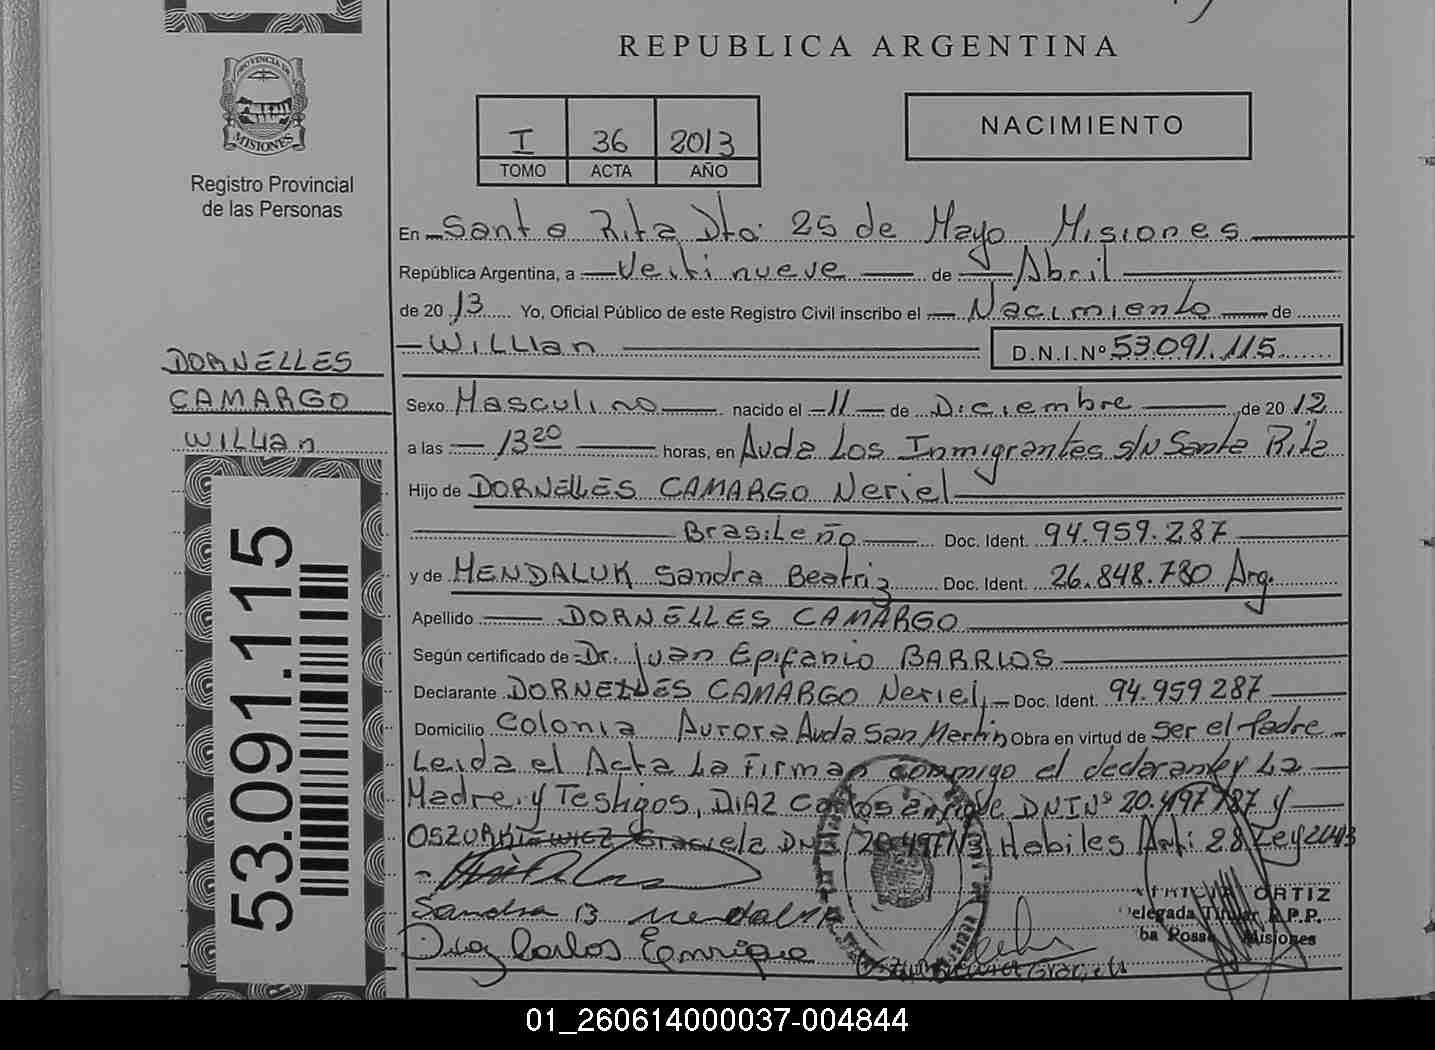 REPUBLICA ARGENTINA
PROVINCIA DE
MISIONES
Registro Provincial
de las Personas
I 36 2013
TOMO ACTA AÑO
NACIMIENTO
En Santa Rita Dto. 25 de Mayo Misiones
República Argentina, a Veitinueve de Abril
de 2013 Yo, Oficial Público de este Registro Civil inscribo el Nacimiento de
WILLIan D.N.I.Nº 53.091.115
DORNELLES
CAMARGO
WILLIan
Sexo Masculino nacido el 11 de Diciembre de 2012
a las 13 20 horas, en Avda Los Inmigrantes s/n Santa Rita
Hijo de DORNELLES CAMARGO Neriel
Brasileño Doc. Ident. 94.959.287
y de MENDALUK Sandra Beatriz Doc. Ident. 26.848.780 Arg.
Apellido DORNELLES CAMARGO
Según certificado de Dr. Juan Epifanio BARRIOS
Declarante DORNELLES CAMARGO Neriel, Doc. Ident. 94.959287
Domicilio Colonia Aurora Avda San Martin Obra en virtud de ser el Padre
Leida el Acta La Firman conmigo el declarante y La
Madre y Testigos, DIAZ Carlos Enrique DNINº 20.497787 y
OSZURKIEWICZ Graciela Habiles Arti 28 Ley 2043
Sandra B Mendaluk
Diaz Carlos Enrrique
ORTIZ
Delegada Titular R.P.P.
Misiones
53.091.115
01_260614000037-004844